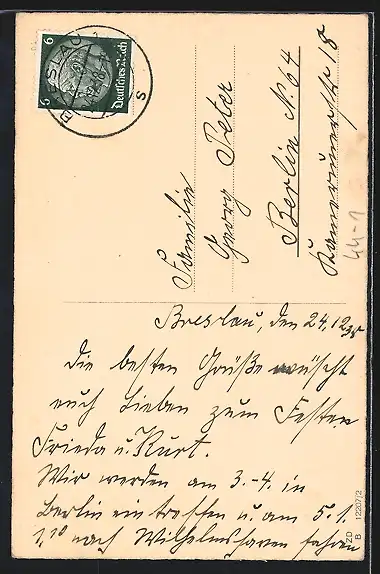 BRESLAU
S
6 6
Deutsches Reich
Familie
Georg Peter
Berlin N. 64
Kamerunerstr 18
44-1
Breslau, den 24.12.38
Die besten Grüße wüscht
euch Lieben zum Festen
Frieda u. Kurt.
Wir werden am 3.-4. in
Berlin eintreffen u. am 5.1.
1.10 nach Wilhelmshaven fahren
ZD
B 12207/2